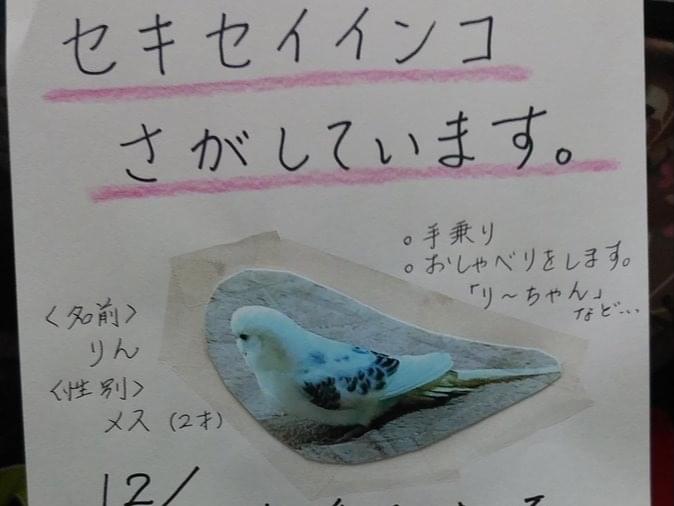 セキセイインコ
さがしています。
○手乗り
○おしゃべりをします。
「り〜ちゃん」
など…
〈名前〉
りん
〈性別〉
メス(2才)
12/